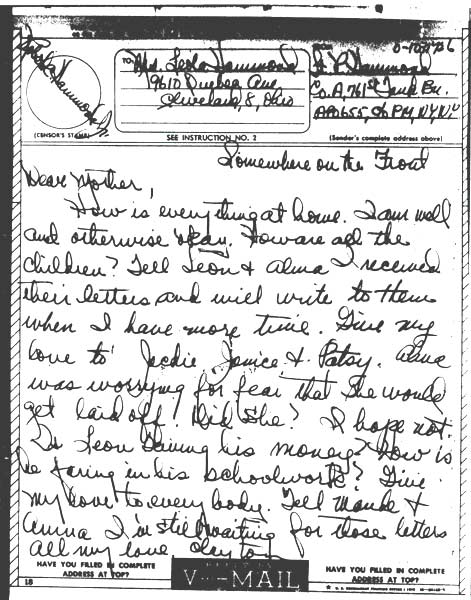 TO Mrs. Leola Hammond
9610 Quebec Ave
Cleveland, 8, Ohio
Hammond
Co. A, 761st Tank Bn.
APO 655, c/o PM, N.Y., N.Y.
(CENSOR'S STAMP)
SEE INSTRUCTION NO. 2
(Sender's complete address above)
Somewhere on the Front
Dear Mother,
How is everything at home. I am well
and otherwise okay. How are all the
children? Tell Leon & Alma I received
their letters and will write to them
when I have more time. Give my
love to Jackie, Janice & Patsy. Alma
was worrying for fear that she would
get laid off. Did she? I hope not.
Is Leon saving his money? How is
he faring in his schoolwork? Give
my love to everybody. Tell &
I'm still waiting for those letters
All my love Clayton
HAVE YOU FILLED IN COMPLETE
ADDRESS AT TOP?
V-MAIL
HAVE YOU FILLED IN COMPLETE
ADDRESS AT TOP?
18